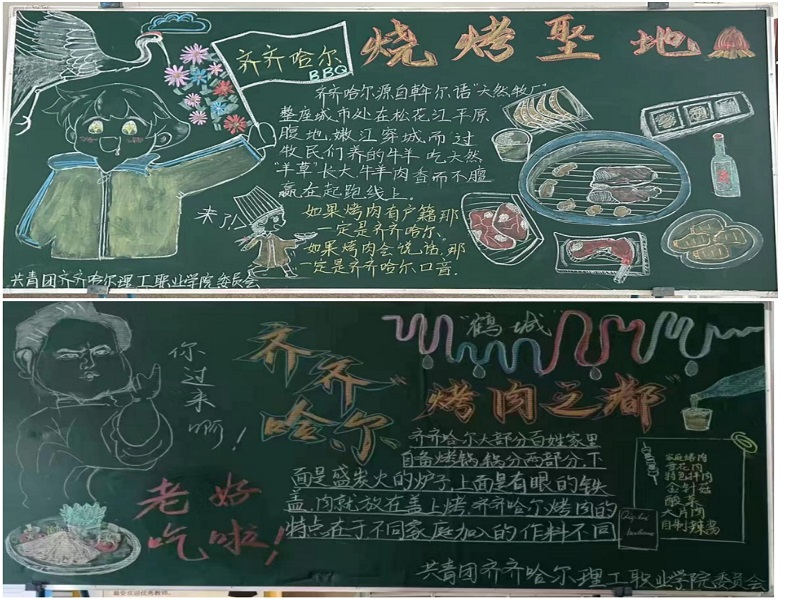 齐齐哈尔
BBQ
烧烤圣地
齐齐哈尔源自達斡尔语"天然牧厂"
整座城市处在松花江平原
腹地,嫩江穿城而过
牧民们养的牛羊吃天然
"羊草"长大,牛羊肉香而不膻
赢在起跑线上.
来了!
如果烤肉有户籍那
一定是齐齐哈尔.
如果烤肉会说话,那
一定是齐齐哈尔口音.
共青团齐齐哈尔理工职业学院委员会
"鹤城"
你过来啊!
齐齐
哈尔
"烤肉之都"
老好
吃啦!
齐齐哈尔大部分百姓家里
自备烤锅,锅分两部分,下
面是盛炭火的炉子,上面是有眼的铁
盖,肉就放在盖上烤.齐齐哈尔烤肉的
特点在于不同家庭加入的作料不同
家庭烤肉
雪花肉
特色拌肉
金针菇
酸菜
大片肉
自制辣酱
共青团齐齐哈尔理工职业学院委员会